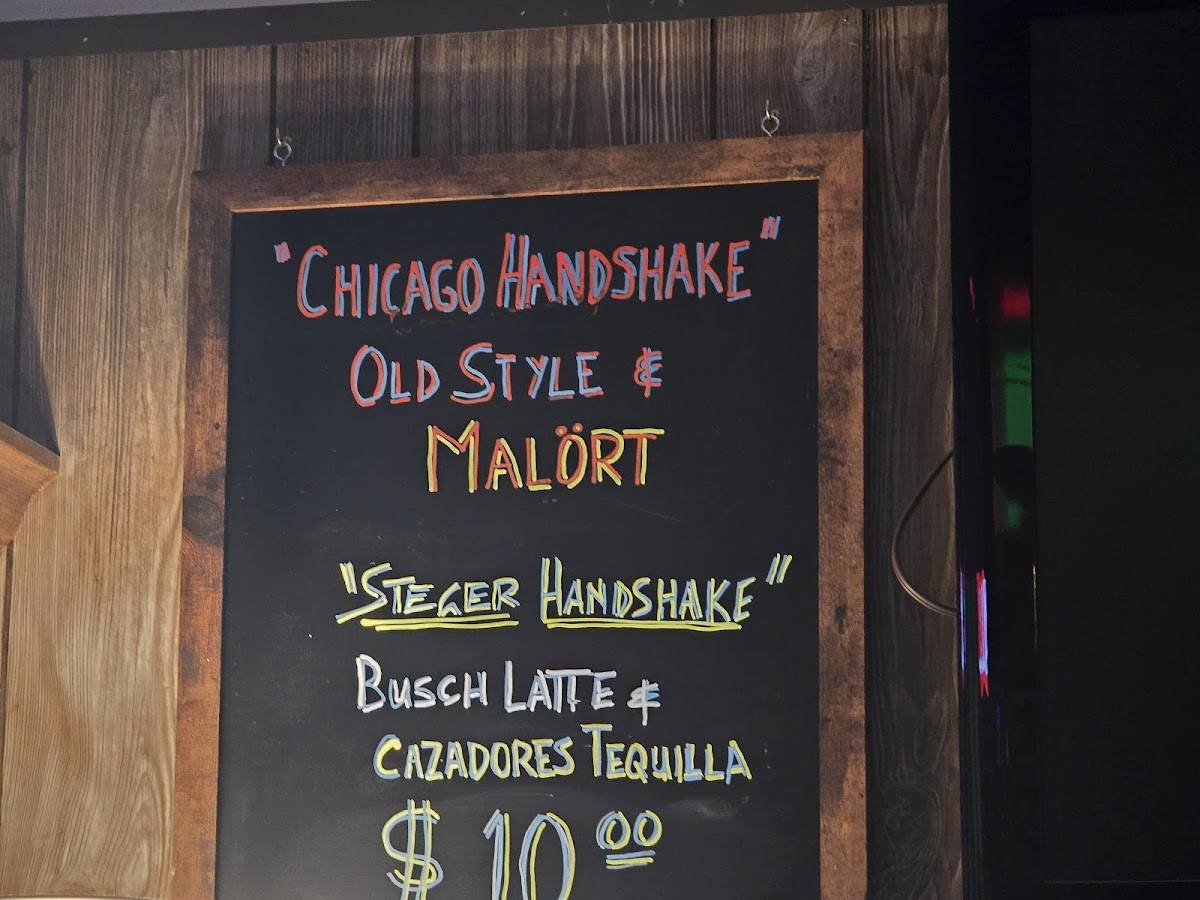 "CHICAGO HANDSHAKE"
OLD STYLE &
MALÖRT
"STEGER HANDSHAKE"
BUSCH LATTE &
CAZADORES TEQUILLA
$ 10 00